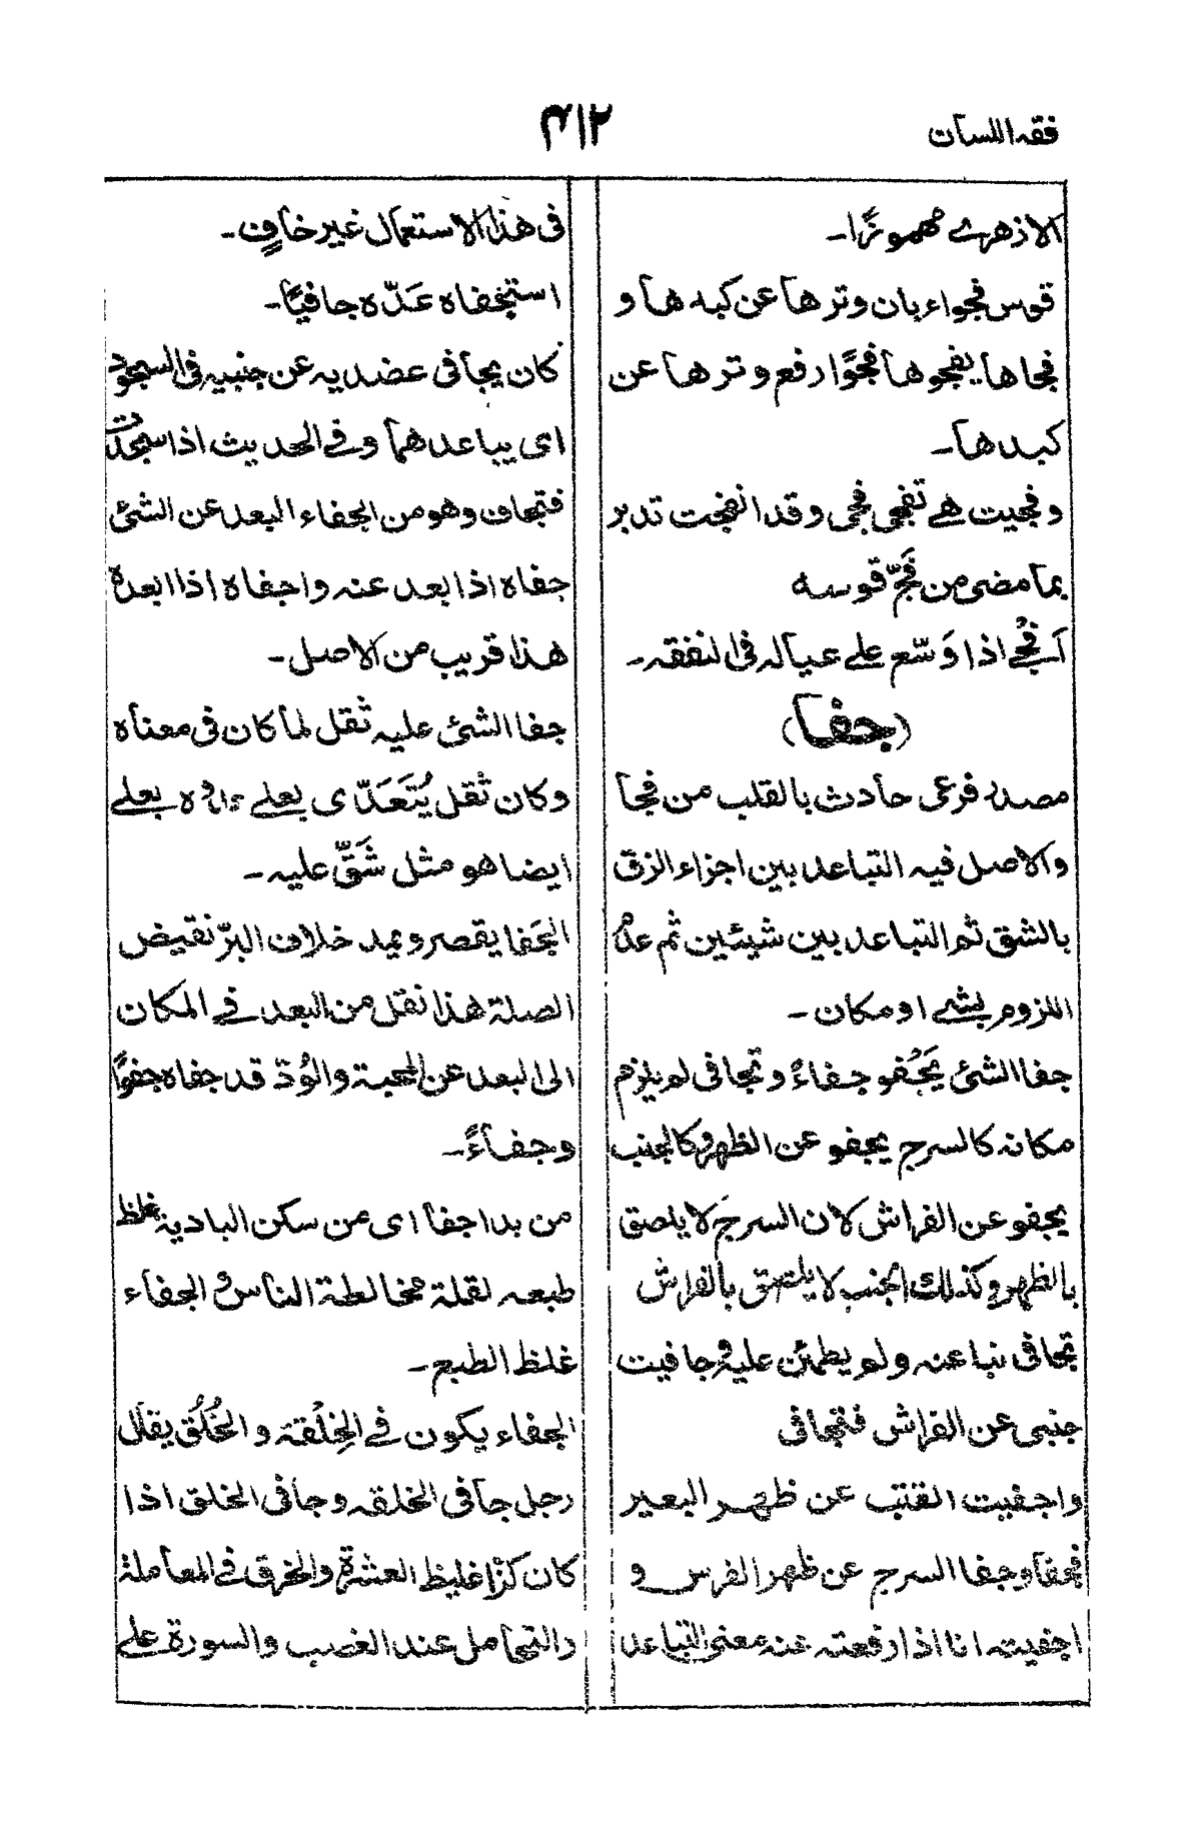 فقه اللسان
۴۱۲
الازهری مهموزًا۔
قوس فجواء بان وترها عن كبدها و
فجاها يفجوها فجوًا رفع وترها عن
كبدها۔
وفجيت هی تفجی فجی وقد انفجت تدبر
بما مضی من فَجّ قوسه
اَفْجٰی اذا وَسّع علی عياله فی النفقه۔
(جفا)
مصدر فرعی حادث بالقلب من فجا
والاصل فيه التباعد بين اجزاء الزق
بالشق ثم التباعد بين شيئين ثم عدم
اللزوم بشی او مكان۔
جفا الشئ يَجْفو جفاءً وتجافی لم يلزم
مكانه كالسرج يجفو عن الظهر وكالجنب
يجفو عن الفراش لان السرج لا يلصق
بالظهر وكذلك الجنب لا يلتصق بالفراش
تجافی نبا عنه ولم يطمئن عليه وجافيت
جنبی عن الفراش فتجافی
واجفيت القتب عن ظهر البعير
فجفا وجفا السرج عن ظهر الفرس و
اجفيته انا اذا رفعته عنه معنی التباعد
فی هذا الاستعمال غير خافٍ۔
استجفاه عَدّه جافيًا۔
كان يجافی عضديه عن جنبيه فی السجود
ای يباعدهما وفی الحديث اذا سجدت
فتجاف وهو من الجفاء البعد عن الشئ
جفاه اذا بعد عنه واجفاه اذا ابعده
هذا قريب من الاصل۔
جفا الشئ عليه ثقل لما كان فی معناه
وكان ثقل يُتَعَدّی بعلی بعلی
ايضا هو مثل شَقّ عليه۔
الجَفا يقصر ويمد خلاف البرّ نقيض
الصلة هذا نقل من البعد فی المكان
الی البعد عن المحبة والوُدّ قد جفاه جفوًا
وجفاءً۔
من بدا جفا ای من سكن البادية غلظ
طبعه لقلة مخالطة الناس و الجفاء
غلظ الطبع۔
الجفاء يكون فی الخِلْقة والخُلُق يقال
رجل جافی الخلقه وجافی الخلق اذا
كان كزًا غليظ العشرة والخرق فی المعاملة
والتحامل عند الغضب والسورة علی